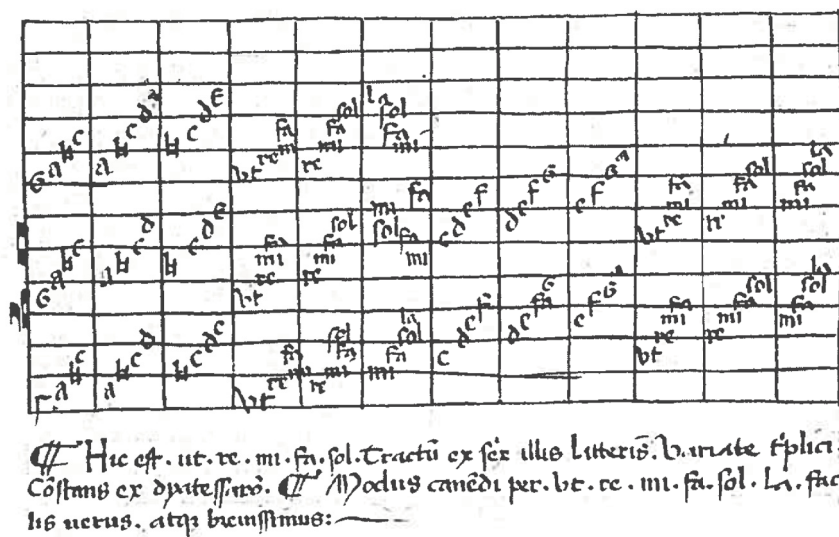 G a ♮ c a ♮ c d ♮ c d E ut re mi fa re mi fa sol mi fa sol la
G a ♮ c a ♮ c d ♮ c d E ut re mi fa re mi fa sol mi fa sol mi fa c d e f d e f G e f G a ut re mi fa re mi fa sol mi fa sol la
Γ a ♮ c a ♮ c d ♮ c d e vt re mi fa re mi fa sol mi fa sol la c d e f d e fa G e f G a vt re mi fa re mi fa sol mi fa sol la
¶ Hic est . ut . re . mi . fa . sol . Tractū ex sex illis litteris. Variate tͥplici
Cōstans ex dyatess.rō. ¶ Modus canēdi per . vt . re . mi . fa . sol . La . fac
lis uerus . atqꝫ breuissimus :